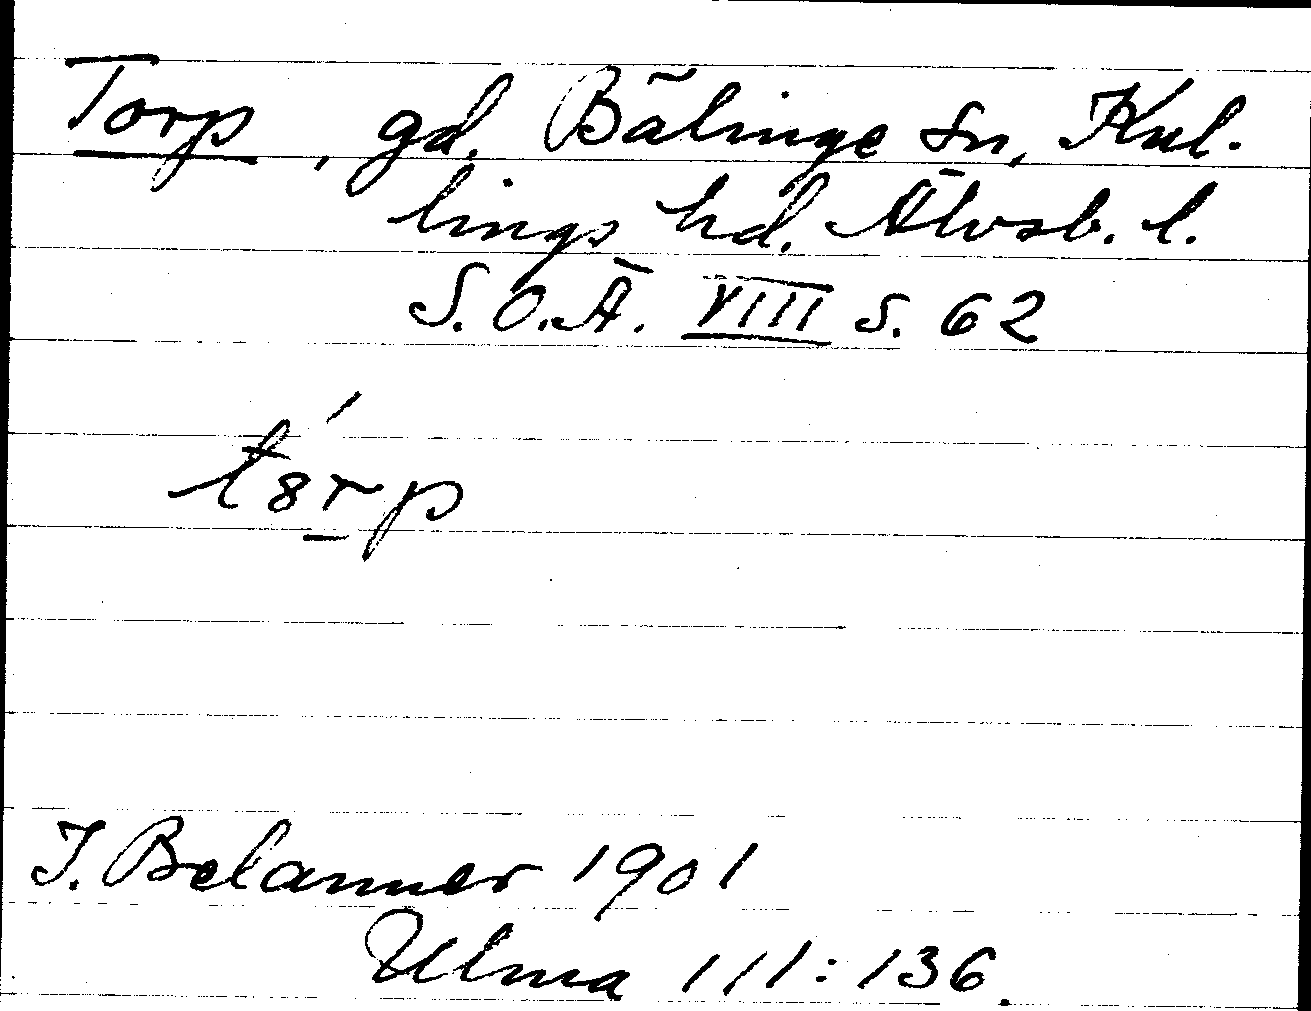 Torp, gd. Bälinge sn, Kul-
lings hd. Älvsb. l.
S.O.Ä. VIII s. 62
t8rp
J. Belanner 1901
Ulma 111:136.